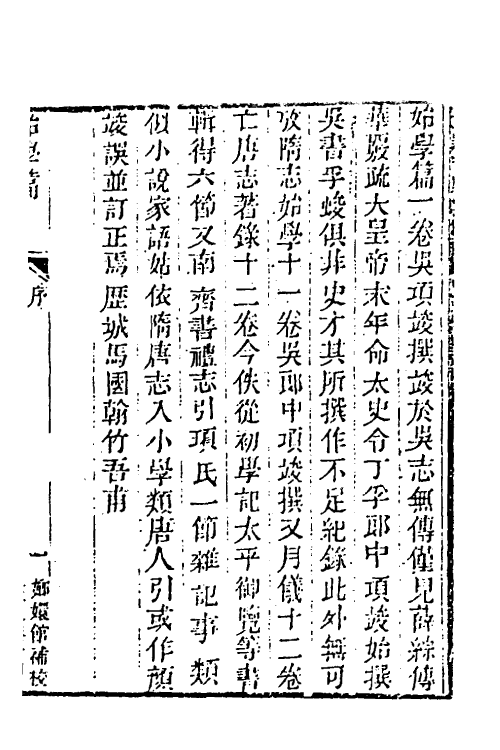 始學篇一卷吳項竣撰竣於吳志無傳僅見薛綜傳
華覈疏大皇帝末年命太史令丁孚郎中項竣始撰
吳書孚竣俱非史才其所撰作不足紀錄此外無可
攷隋志始學十一卷吳郎中項竣撰又月儀十二卷
亡唐志著錄十二卷今佚從初學記太平御覽等書
輯得六節又南齊書禮志引項氏一節雜記事類
似小說家語姑依隋唐志入小學類唐人引或作顏
竣誤並訂正焉歷城馬國翰竹吾甫
始學篇
序
一
嫏嬛館補校